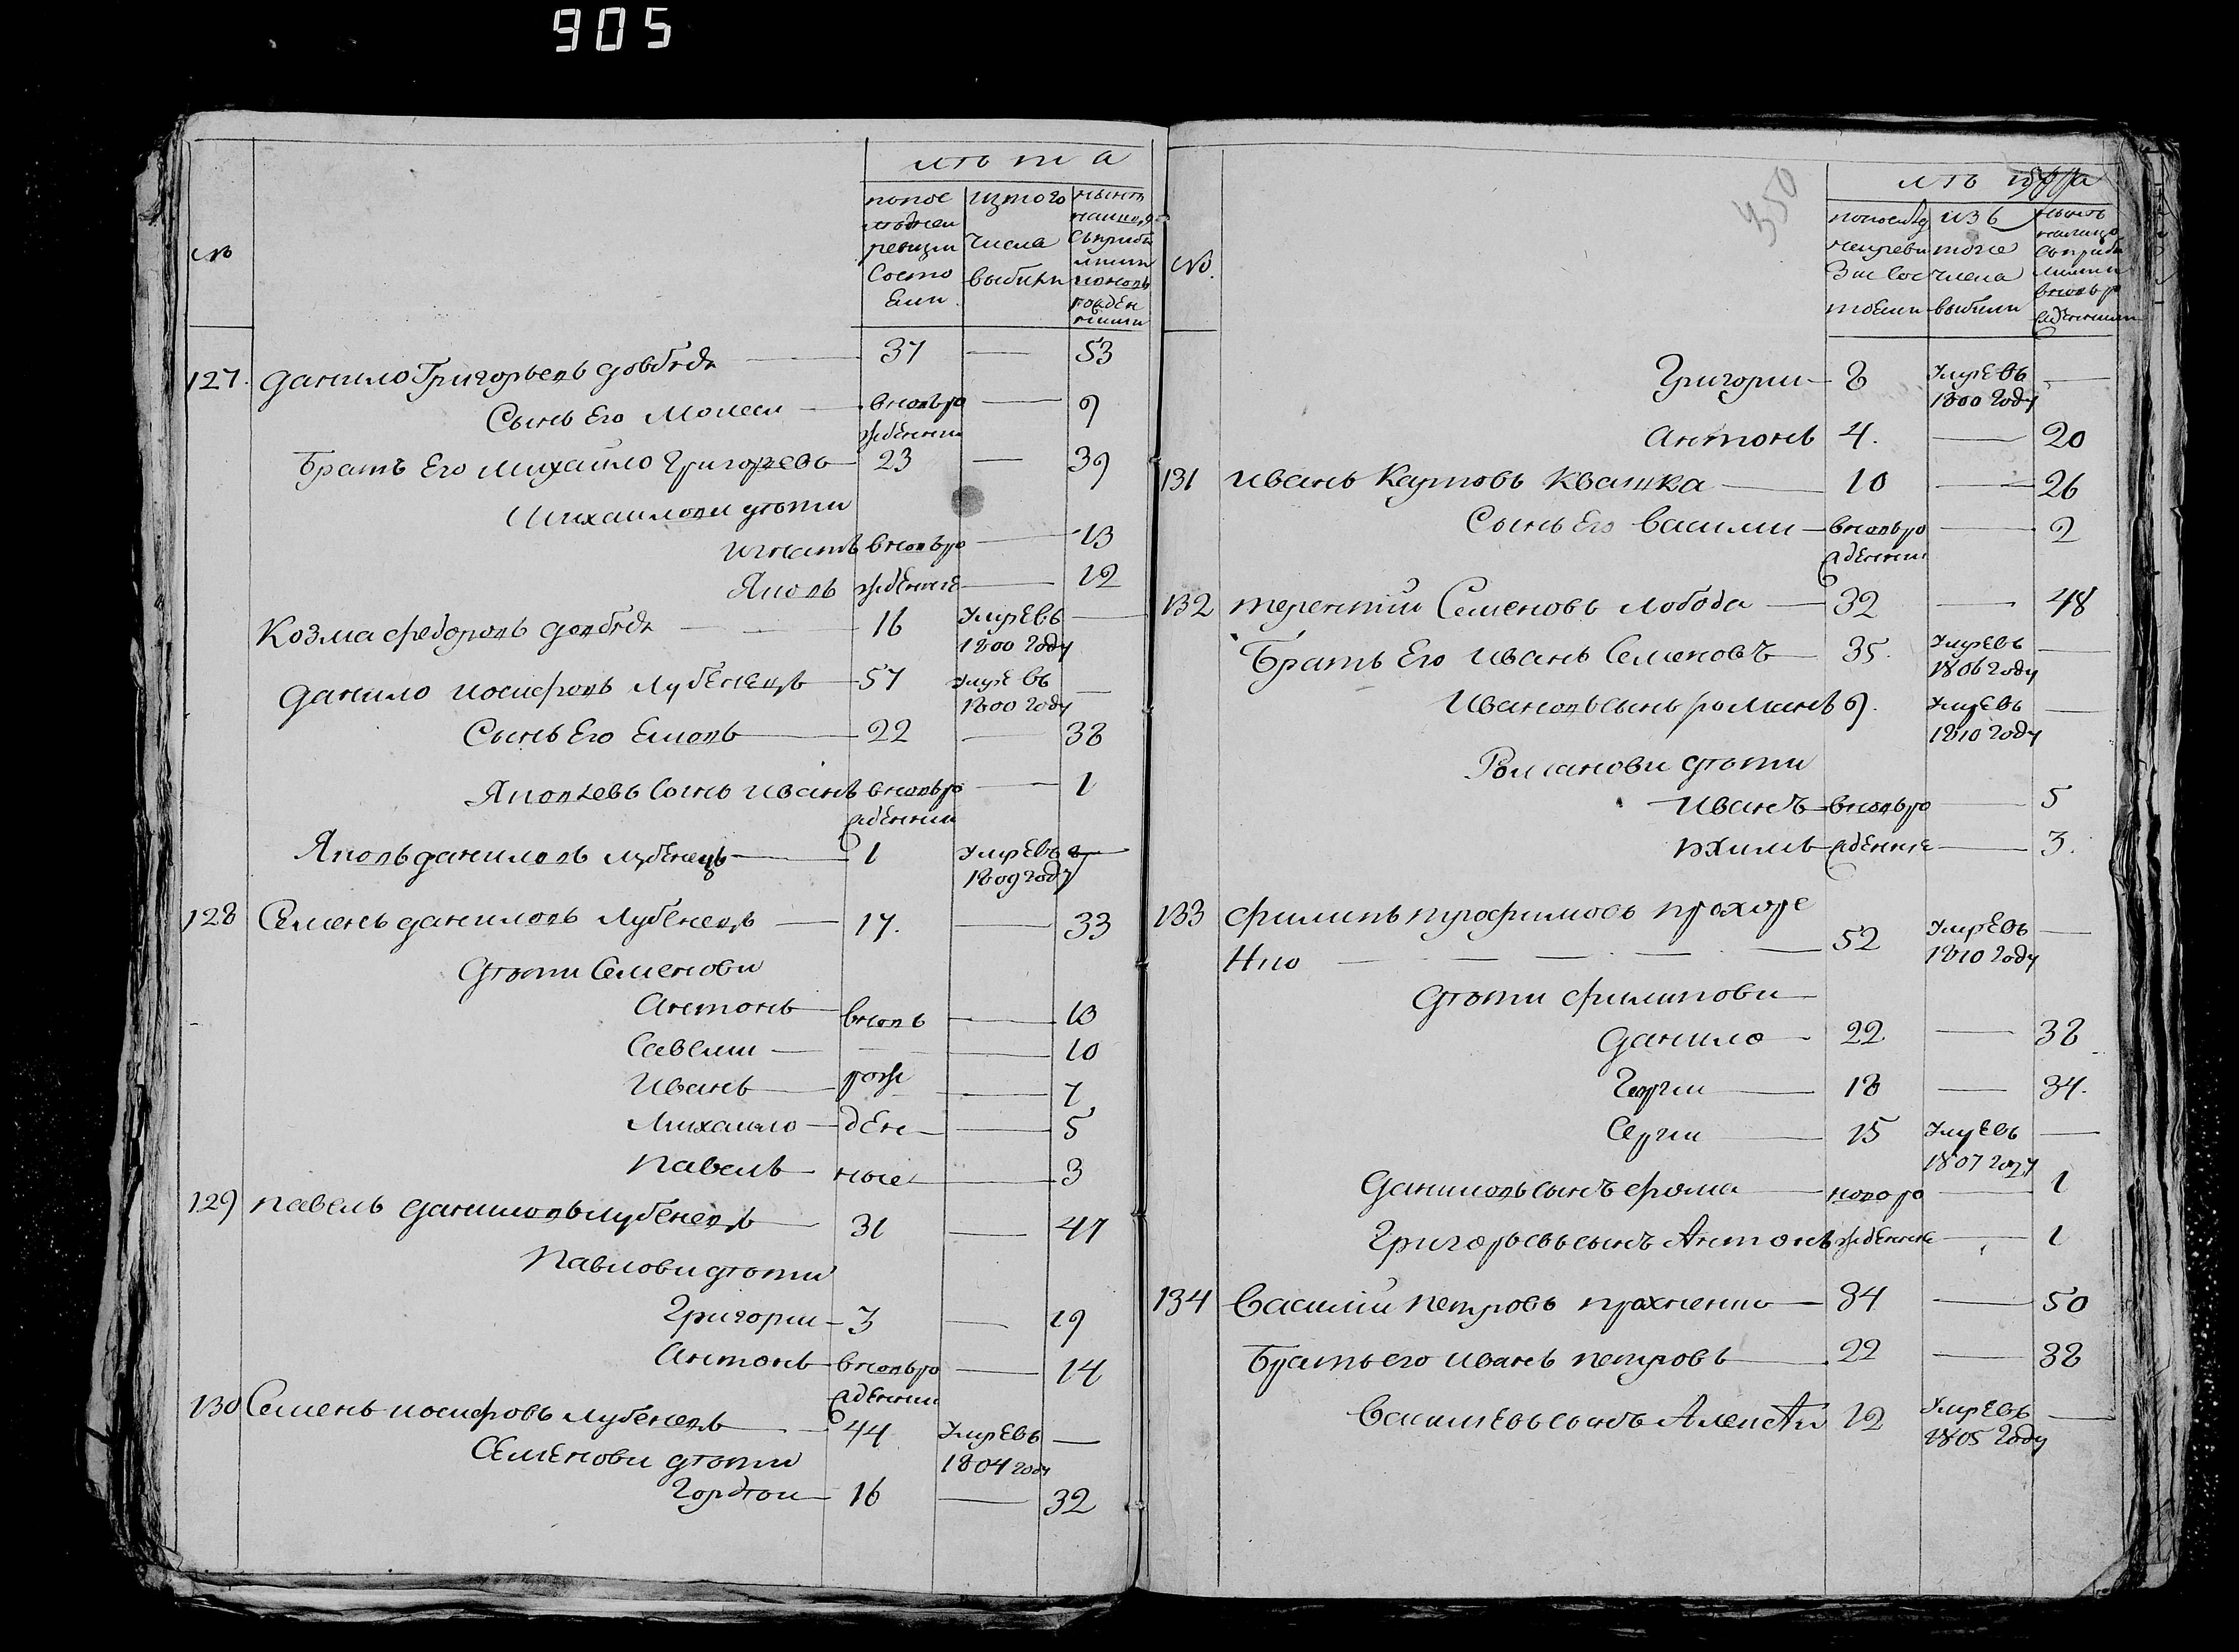 905
лѣта
No
попос
ледней
ревизии
Состо
Ели
изтого
числа
выбыли
нынѣ
налицо
съприбы
лыми
иновь
рожден
ними
127. данило Григорьевъ довбѣдя — 37 — 53
Сынъ Его Моисеи — вновъро — 9
жденнии
Братъ Его михайло Григоревъ — 23 — 39
Михаилови дѣти
игнатъ вновъро — 13
Яковъ жденные — 12
Козма федоровъ довбѣдя — 16 Умревъ —
1800 году
данило иосифовъ лубенецъ — 57 умревъ —
1800 году
Сынъ Его Емонъ — 22 — 38
Яковлевъ Сынъ иванъ вновъро — 1
жденнии
Яковъ даниловъ лубенецъ — 1 Умревъ —
1809 году
128 Семенъ даниловъ лубенецъ — 17. — 33
дѣти Семенови
Антонъ — вновъ — 13
Савелии — 10
Иванъ — рож — 7
Михаило — ден — 5
Павелъ — ные — 3
129 павелъ даниловъ лубенецъ — 31 — 47
Павлови дѣти
Григории — 3 — 19
Антонъ — вновъро — 14
жденнии
130 Семенъ иосифовъ лубенецъ — 44 Умревъ —
1804 году
Семенови дѣти
Гордѣи — 16 — 32
350
лѣта
No.
попослед
неиреви
Зии Сос
тоЕли
изъ
того
числа
выбыли
нынѣ
налицо
съприбы
лыми
вновьро
жденними
Григории — 8 Умревъ —
1800 году
Антонъ 4. — 20
131 Иванъ Карповъ Квашка — 10 — 26
Сынъ Его Василии — вновъро — 2
жденнии
132 терентии Семеновъ лобода — 32 — 48
Братъ Его Иванъ Семеновъ — 35. Умревъ —
1806 году
Ивановъ сынъ романъ 9. Умревъ —
1810 году
Романови дѣти
Иванъ — вновъро — 5
жденние — 3.
133 филипъ трофимовъ прохоре
Нко — 52 Умревъ —
1810 году
дѣти филипови
данило — 22 — 38
18 — 34.
Сергии — 15 Умревъ —
1807 году
даниловъ сынъ фома — новоро — 1
Григорьевъ сынъ Антонъ жденные — 1
134 Василии петровъ прохненко — 34 — 50
Братъ его иванъ петровъ — 22 — 38
Василиевъ сынъ Алексѣи 12 Умревъ —
1805 году